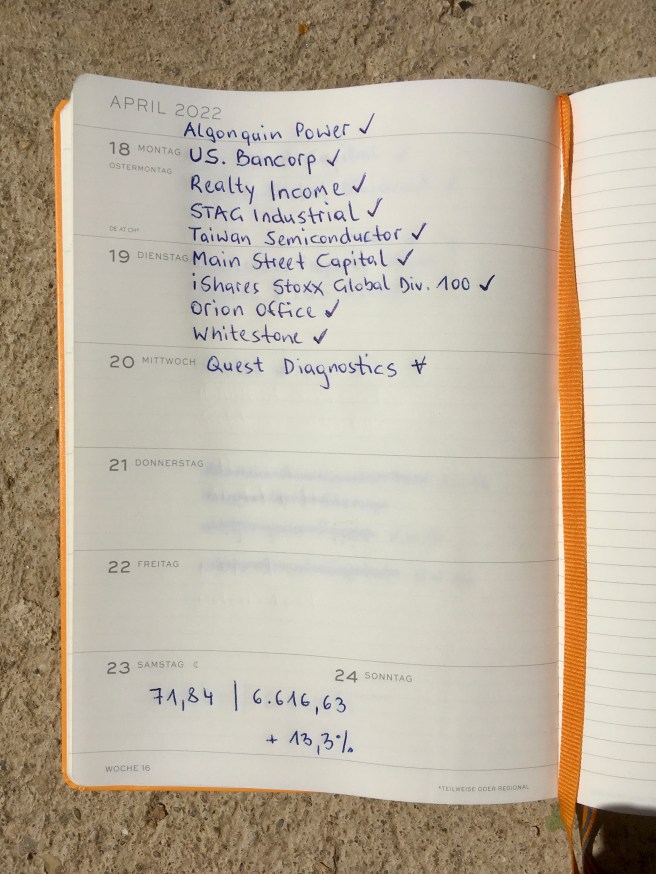 APRIL 2022
Algonquin Power ✓
18 MONTAG U.S. Bancorp ✓
OSTERMONTAG
Realty Income ✓
STAG Industrial ✓
DE AT CH*
Taiwan Semiconductor ✓
19 DIENSTAG Main Street Capital ✓
iShares Stoxx Global Div. 100 ✓
Orion Office ✓
Whitestone ✓
20 MITTWOCH Quest Diagnostics
21 DONNERSTAG
22 FREITAG
23 SAMSTAG ☾
24 SONNTAG
71,84 | 6.616,63
+ 13,3%
WOCHE 16
*TEILWEISE ODER REGIONAL